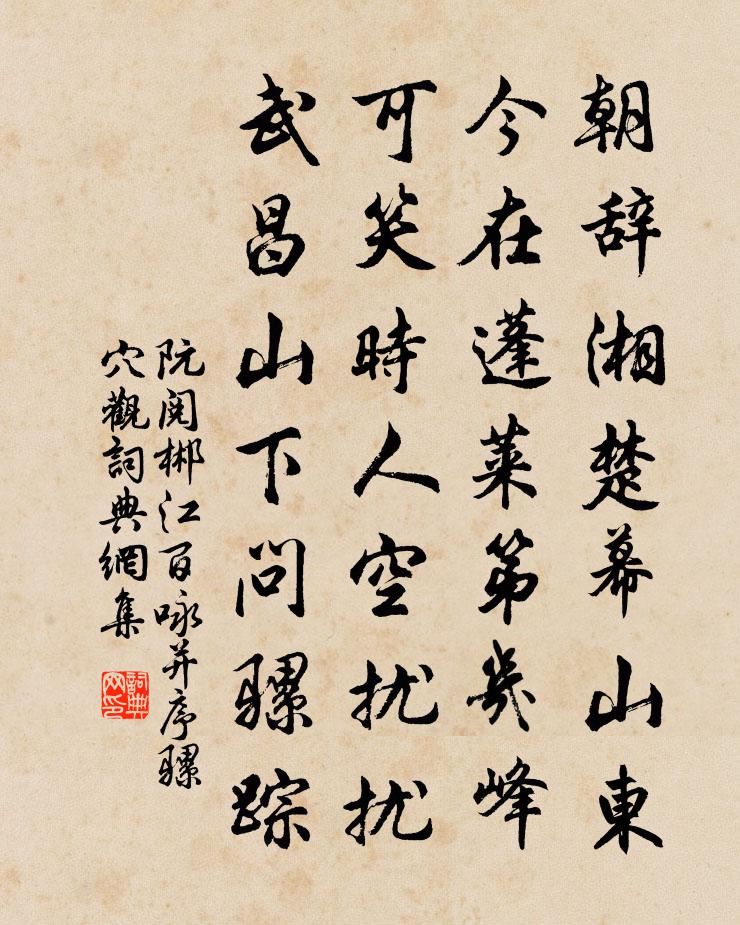 朝辞湘楚幕山東
今在蓬莱第幾峰
可笑時人空扰扰
武昌山下問骡踪
阮阅郴江百咏并序骡
穴觀詞典網集
詞典网印